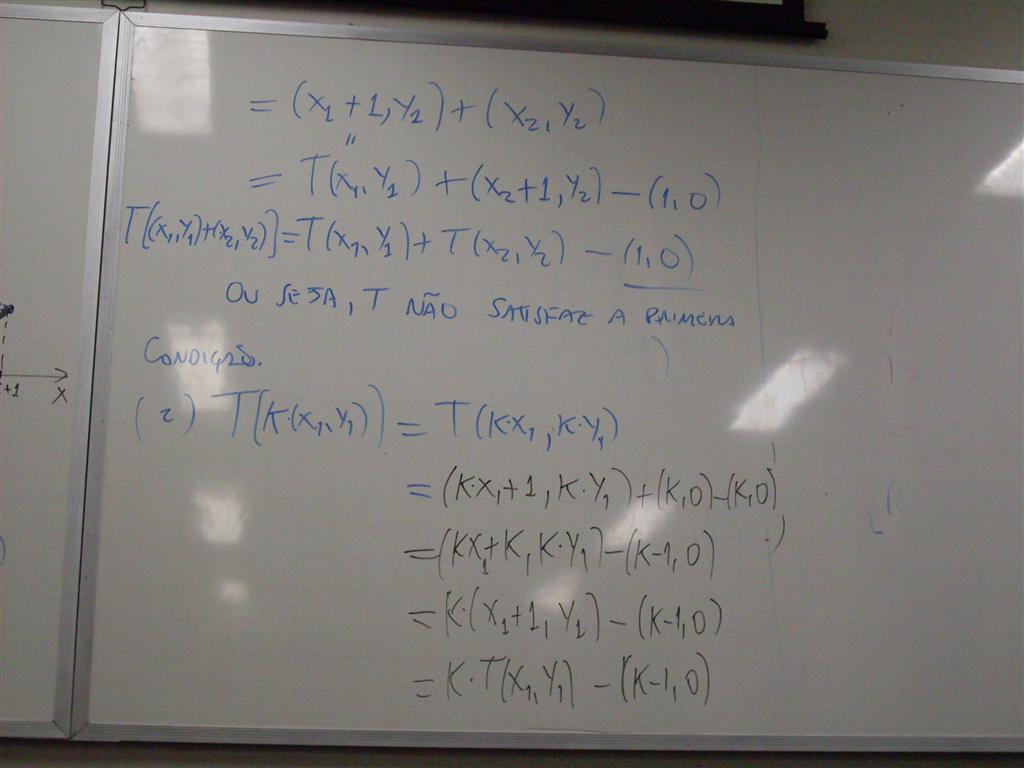 = (x₁ + 1, y₁) + (x₂, y₂)
"
= T(x₁, y₁) + (x₂+1, y₂) - (1, 0)
T[(x₁, y₁)+(x₂, y₂)] = T(x₁, y₁) + T(x₂, y₂) - (1, 0)
OU SEJA, T NÃO SATISFAZ A PRIMEIRA
CONDIÇÃO.
+1 X
(2) T[K·(x₁, y₁)] = T(K·x₁, K·y₁)
= (K·x₁+1, K·y₁) + (K, 0) - (K, 0)
= (Kx₁+K, K·y₁) - (K-1, 0)
= K·(x₁+1, y₁) - (K-1, 0)
= K·T(x₁, y₁) - (K-1, 0)